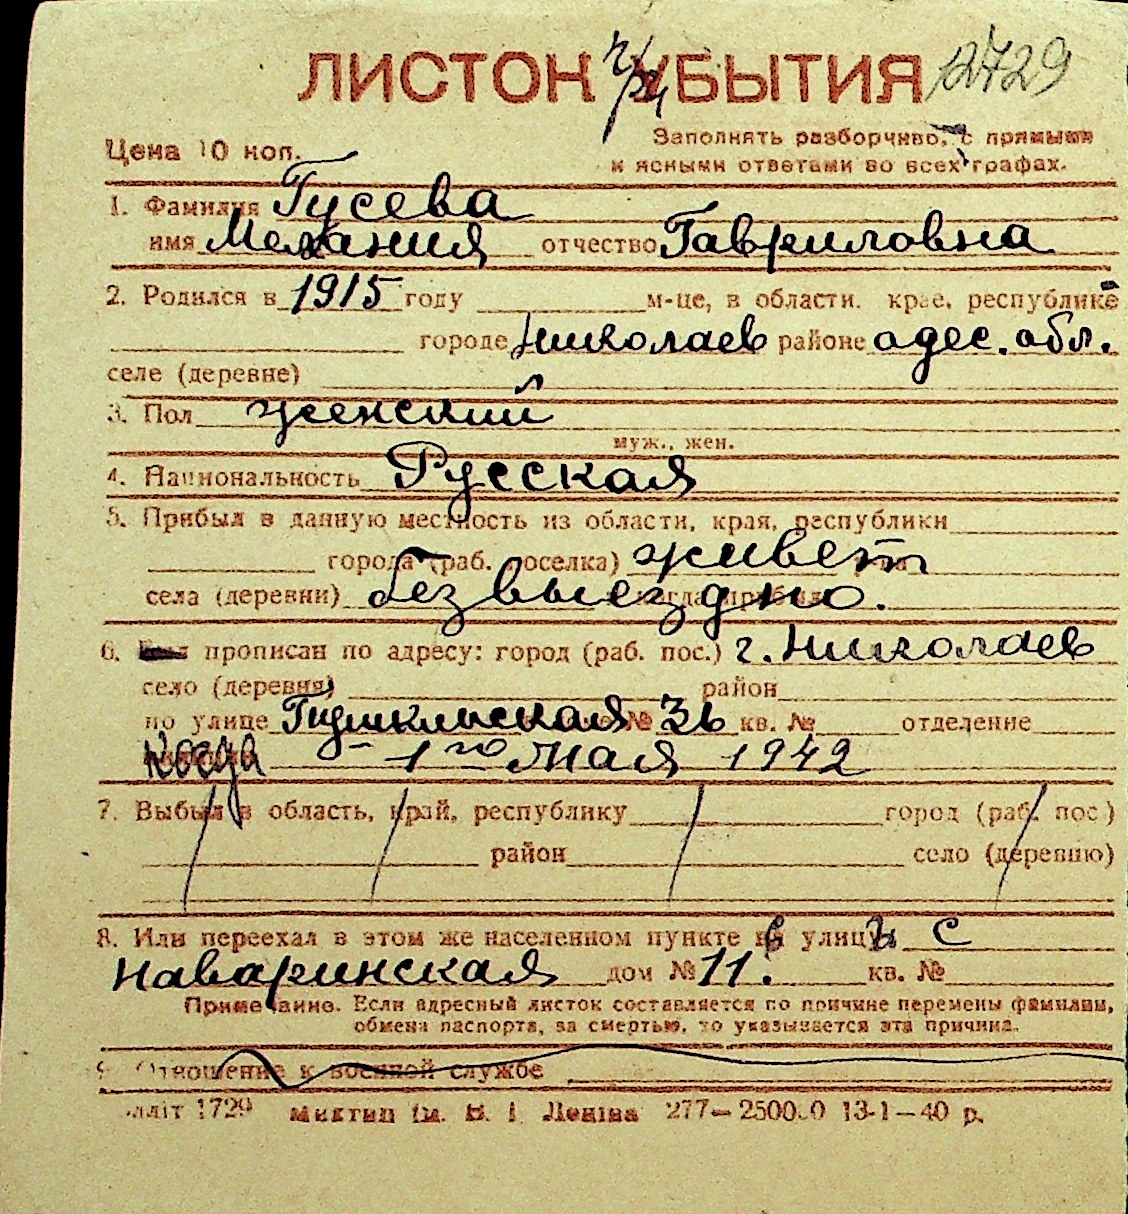 ЛИСТОК УБЫТИЯ 12729
Цена 10 коп. Заполнять разборчиво, с прямыми
и ясными ответами во всех графах.
1. Фамилия Гусева
имя Мелания отчество Гавриловна
2. Родился в 1915 году м-це, в области. крае, республике
городе Николаев районе одес. обл.
селе (деревне)
3. Пол женский
муж., жен.
4. Национальность Русская
5. Прибыл в данную местность из области, края, республики
города (раб. поселка) живет
села (деревни) безвыездно.
6. прописан по адресу: город (раб. пос.) г. Николаев
село (деревня) район
по улице № 36 кв. № отделение
Когда - 1го Мая 1942
7. Выбыл в область, край, республику город (раб. пос)
район село (деревню)
8. Или переехал в этом же населенном пункте улицы с
Наваринская дом № 11. кв. №
Примечание. Если адресный листок составляется по причине перемены фамилии,
обмена паспорта, за смертью, то указывается эта причина.
9. Отношение к военной службе
1729 Леніна 277— 13-1—40 р.